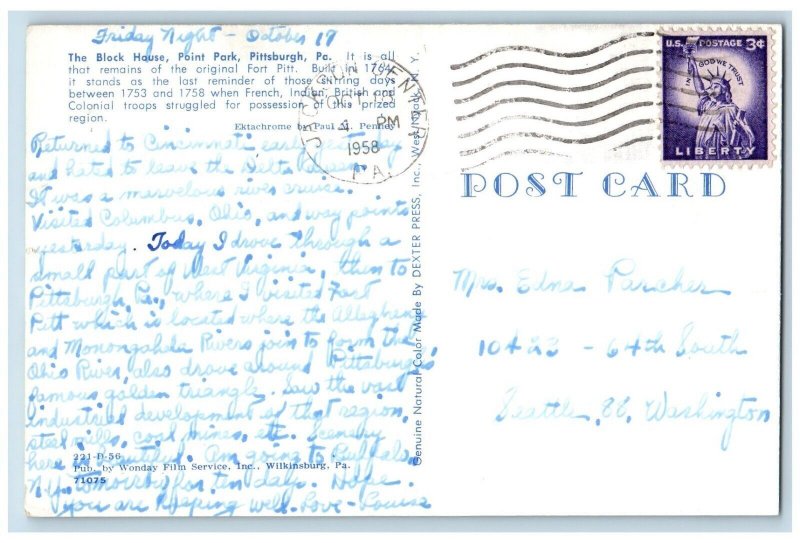 Friday Night - October 17
The Block House, Point Park, Pittsburgh, Pa. It is all
that remains of the original Fort Pitt. Built in 1764,
it stands as the last reminder of those stirring days
between 1753 and 1758 when French, Indian, British and
Colonial troops struggled for possession of this prized
region.
Ektachrome by Paul E. Penney
Returned to Cincinnati early yest'day
and hated to leave the Delta Queen.
It was a marvelous river cruise.
Visited Columbus, Ohio, and way points
yesterday. Today I drove through a
small part of West Virginia, then to
Pittsburgh, Pa., where I visited Fort
Pitt which is located where the Allegheny
and Monongahela Rivers join to form the
Ohio River, also drove around Pittsburgh's
famous golden triangle. Saw the vast
industrial development of that region,
steel mills, coal mines, etc. Scenery
here is beautiful. Am going to Buffalo,
N.Y. tomorrow for ten days. Hope
you are keeping well. Love - Louise
221-D-56
Pub. by Wonday Film Service, Inc., Wilkinsburg, Pa.
71075
Genuine Natural Color Made By DEXTER PRESS, Inc., West Nyack, N. Y.
OCT
PM
1958
PA.
U.S. POSTAGE 3¢
IN GOD WE TRUST
LIBERTY
POST CARD
Mrs. Edna Parcher
10423 - 64th South
Seattle, 88, Washington